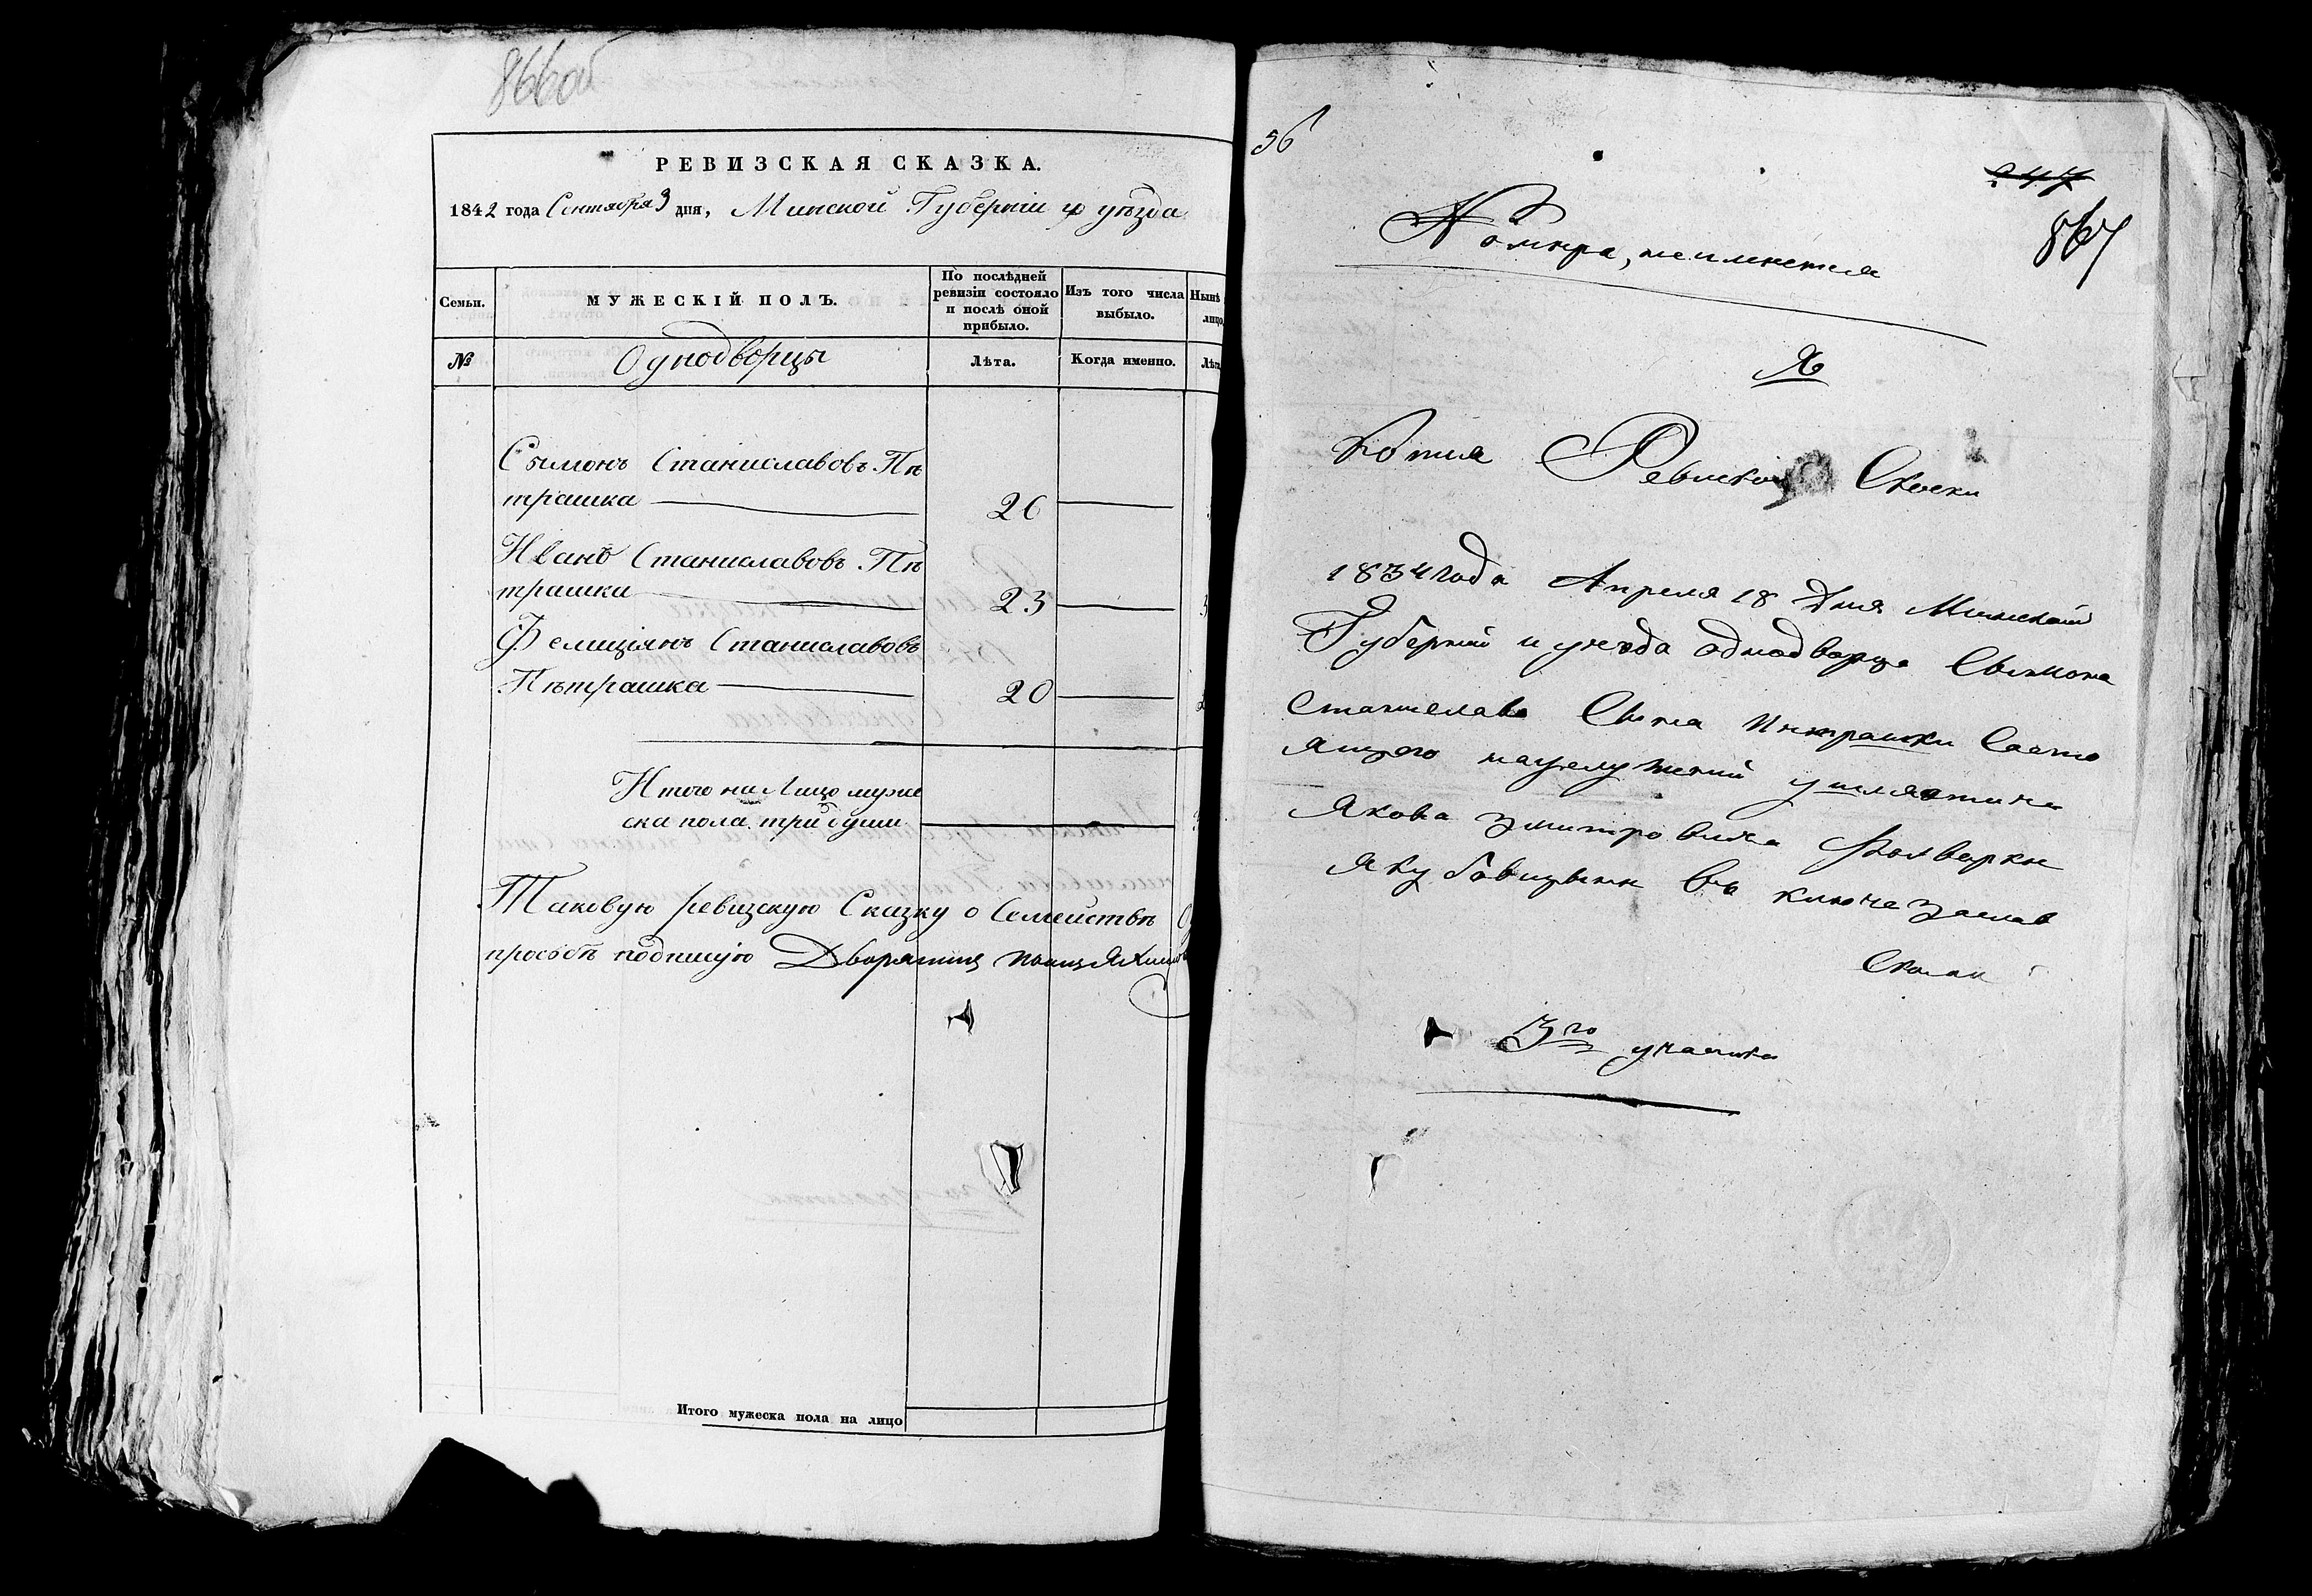 866об
РЕВИЗСКАЯ СКАЗКА.
1842 года Сентября 9 дня, Минской Губерніи и уѣзда
Семьи.
МУЖЕСКІЙ ПОЛЪ.
По послѣдней ревизіи состояло и послѣ оной прибыло.
Изъ того числа выбыло.
Нынѣ лицо
№
Однодворцы
Лѣта.
Когда именно.
Лѣта
Сымонъ Станиславовъ Пѣ
трашка 26
Иванъ Станиславовъ Пѣ
трашка 23
Фелиціянъ Станиславовъ
Пѣтрашка 20
Итого на Лицо муже
ска пола три души
Таковую ревизскую Сказку о Семействѣ
просьбѣ подпишую Дворянинъ
Итого мужеска пола на лицо
56
247
867
Номира, не имеется
Копия Ревиской Скаски
1834 года Апреля 18 Дня Минской
Губерний и уезда однодворца Сымона
Станислава Сына Пѣтрашки Састо
ящего науслужений у шляхтича
Якова Змитровича Фольварки
Якубовщизни въ ключе Заслав
Скаки
3го участка